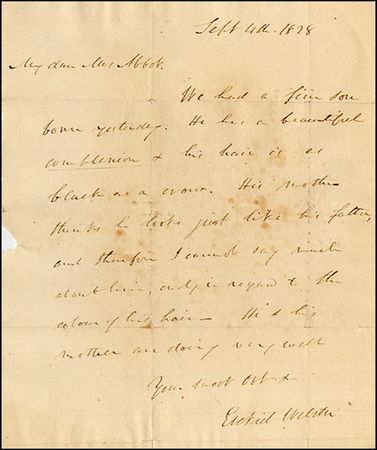 Sept 4th. 1828
My dear Mr. Abbot.
We had a fine son
born yesterday. He has a beautiful
complexion & his hair is as
black as a crow. His mother
thinks he looks just like his father,
and therefore I cannot say much
about him, only in regard to the
colour of his hair — He & his
mother are doing very well
Your most Obt
Ezekiel Webster